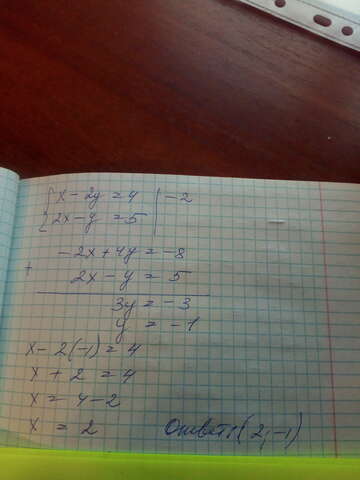 { x - 2y = 4 | -2
{ 2x - y = 5 |
-2x + 4y = -8
+
2x - y = 5
3y = -3
y = -1
x - 2(-1) = 4
x + 2 = 4
x = 4 - 2
x = 2 Ответ: (2, -1)